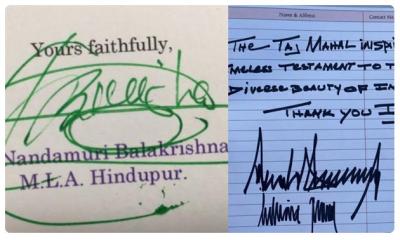 Yours faithfully,
Nandamuri Balakrishna
M.L.A. Hindupur.
Name & Address
Contact No
THE TAJ MAHAL INSPI
TIMELESS TESTAMENT TO T
DIVERSE BEAUTY OF IN
THANK YOU I